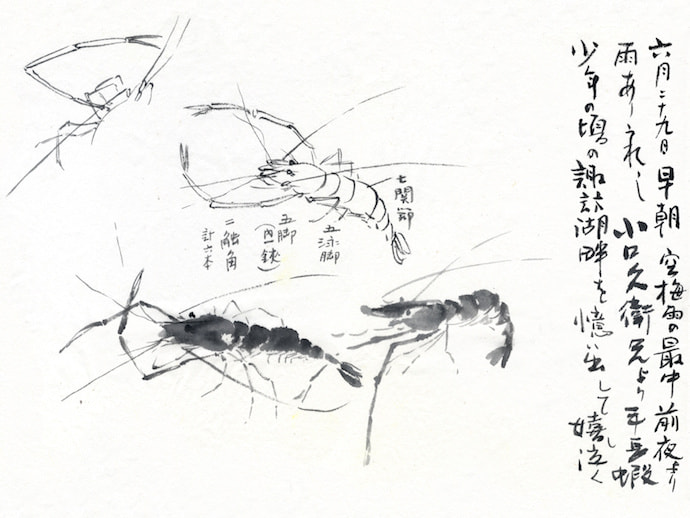 六月二十九日 早朝 空梅雨の最中 前夜より
雨ありれし 小口久衛兄より 手長蝦
少年の頃の諏訪湖畔を憶い出して 嬉し泣く
七関節
五泳脚
五脚
(内一鋏)
二触角
計六本